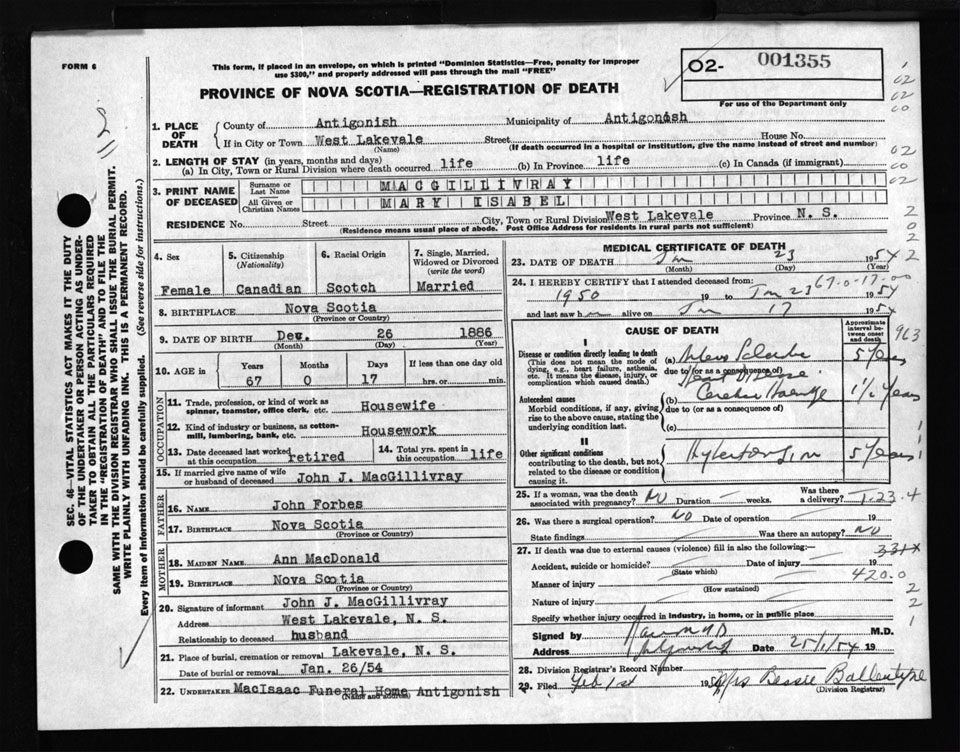 FORM 6
This form, if placed in an envelope, on which is printed "Dominion Statistics—Free, penalty for improper
use $300," and properly addressed will pass through the mail "FREE"
PROVINCE OF NOVA SCOTIA—REGISTRATION OF DEATH
O2- 001355
For use of the Department only
SEC. 46—VITAL STATISTICS ACT MAKES IT THE DUTY
OF THE UNDERTAKER OR PERSON ACTING AS UNDER-
TAKER TO OBTAIN ALL THE PARTICULARS REQUIRED
IN THE "REGISTRATION OF DEATH" AND TO FILE THE
SAME WITH THE DIVISION REGISTRAR WHO SHALL ISSUE THE BURIAL PERMIT.
WRITE PLAINLY WITH UNFADING INK. THIS IS A PERMANENT RECORD.
Every item of information should be carefully supplied. (See reverse side for instructions.)
1. PLACE OF DEATH
County of Antigonish Municipality of Antigonish
If in City or Town West Lakevale Street House No.
(Name) (If death occurred in a hospital or institution, give the name instead of street and number)
2. LENGTH OF STAY (in years, months and days)
(a) In City, Town or Rural Division where death occurred life (b) In Province life (c) In Canada (if immigrant)
3. PRINT NAME OF DECEASED
Surname or Last Name MACGILLIVRAY
All Given or Christian Names MARY ISABEL
RESIDENCE No. Street City, Town or Rural Division West Lakevale Province N. S.
(Residence means usual place of abode. Post Office Address for residents in rural parts not sufficient)
4. Sex
Female
5. Citizenship
(Nationality)
Canadian
6. Racial Origin
Scotch
7. Single, Married,
Widowed or Divorced
(write the word)
Married
8. BIRTHPLACE Nova Scotia
(Province or Country)
9. DATE OF BIRTH Dec. 26 1886
(Month) (Day) (Year)
10. AGE in Years Months Days If less than one day
67 0 17 hrs. or min.
OCCUPATION
11. Trade, profession, or kind of work as
spinner, teamster, office clerk, etc. Housewife
12. Kind of industry or business, as cotton-
mill, lumbering, bank, etc. Housework
13. Date deceased last worked
at this occupation retired
14. Total yrs. spent in
this occupation life
15. If married give name of wife
or husband of deceased John J. MacGillivray
FATHER
16. NAME John Forbes
17. BIRTHPLACE Nova Scotia
(Province or Country)
MOTHER
18. MAIDEN NAME Ann MacDonald
19. BIRTHPLACE Nova Scotia
(Province or Country)
20. Signature of informant John J. MacGillivray
Address West Lakevale, N. S.
Relationship to deceased husband
21. Place of burial, cremation or removal Lakevale, N. S.
Date of burial or removal Jan. 26/54
22. UNDERTAKER MacIsaac Funeral Home Antigonish
(Name and address)
MEDICAL CERTIFICATE OF DEATH
23. DATE OF DEATH Jan 23 1954
(Month) (Day) (Year)
24. I HEREBY CERTIFY that I attended deceased from: 67-0-17-00
1950 19 to Jan 23 1954
and last saw h alive on Jan 17 1954
CAUSE OF DEATH
Approximate
interval be-
tween onset
and death
963
I
Disease or condition directly leading to death
(This does not mean the mode of
dying, e.g., heart failure, asthenia,
etc. It means the disease, injury, or
complication which caused death.)
(a) 5 years
due to (or as a consequence of)
Heart Disease
Antecedent causes
Morbid conditions, if any, giving
rise to the above cause, stating the
underlying condition last.
(b) 1½ years
due to (or as a consequence of)
(c)
II
Other significant conditions
contributing to the death, but not
related to the disease or condition
causing it.
Hypertension 5 years
25. If a woman, was the death
associated with pregnancy? No Duration weeks. Was there
a delivery? 1-23-4
26. Was there a surgical operation? No Date of operation 19
State findings Was there an autopsy? No
27. If death was due to external causes (violence) fill in also the following:— 331X
Accident, suicide or homicide? Date of injury 19
(State which) 420.0
Manner of injury
(How sustained)
Nature of injury
Specify whether injury occurred in industry, in home, or in public place
Signed by M.D.
Address Antigonish Date 25/1/54 19
28. Division Registrar's Record Number
29. Filed Feb 1st 1954 Mrs Bessie Ballentyne
(Division Registrar)